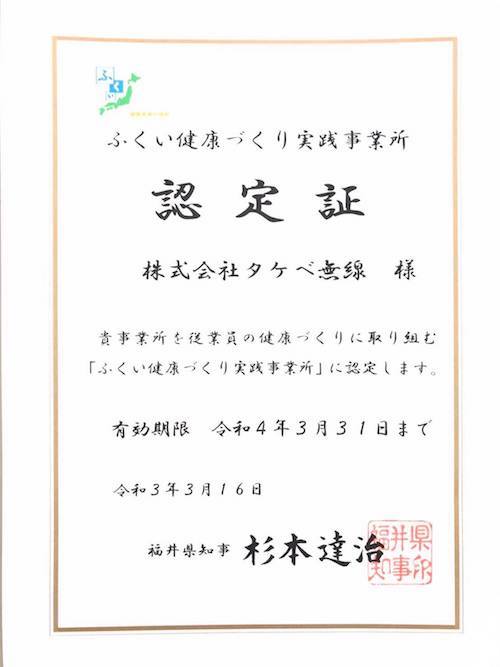 ふくい
ふくい健康づくり実践事業所
認定証
株式会社タケベ無線　様
貴事業所を従業員の健康づくりに取り組む
「ふくい健康づくり実践事業所」に認定します。
有効期限　令和４年３月３１日まで
令和３年３月１６日
福井県知事　杉本達治
福井県
知事印